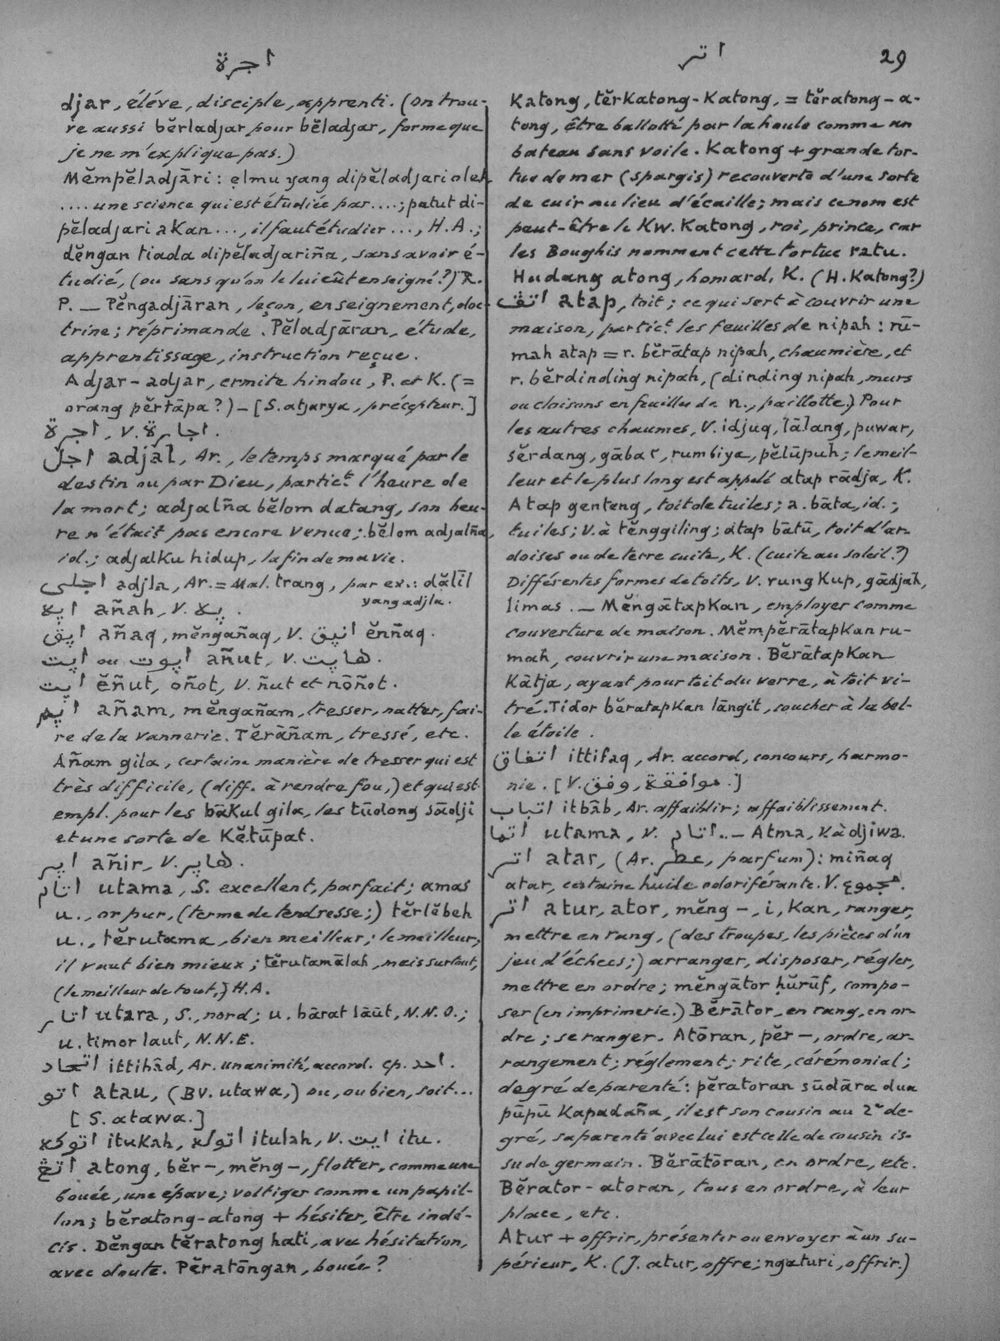 اجرة
اتر
29
djar, éléve, disciple, apprenti. (On trou-
ve aussi bĕrladjar pour bĕladjar, forme que
je ne m'explique pas.)
Mĕmpĕladjāri: elmu yang dipĕladjari oleh
.... une science qui est étudiée par....; patut di-
pĕladjari akan..., il faut étudier..., H.A.;
dĕngan tiada dipĕladjariña, sans avoir é-
tudié, (ou sans qu'on le lui eût enseigné?) R.
P. — Pĕngadjāran, leçon, enseignement, doc-
trine; réprimande. Pĕladjāran, etude,
apprentissage, instruction reçue.
Adjar-adjar, ermite hindou, P. et K. (=
orang pĕrtāpa?) — [S. atjarya, précepteur.]
اجرة, V. اجارة.
اجل adjal, Ar., le temps marqué par le
destin ou par Dieu, partict l'heure de
la mort; adjalña bĕlom datang, son heu-
re n'était pas encore venue; bĕlom adjalña,
id.; adjalku hidup, la fin de ma vie.
اجلى adjla, Ar. = Mal. trang, par ex.: dălīl
yang adjla.
añah, V.
añaq, mĕngañaq, V. ĕnñaq.
ou añut, V.
ĕñut, oñot, V. ñut et nōñot.
añam, mĕngañam, tresser, natter, fai-
re de la vannerie. Tĕrāñam, tressé, etc.
Añam gila, certaine manière de tresser qui est
très difficile, (diff. à rendre fou,) et qui est
empl. pour les bākul gila, les tūdong sādji
et une sorte de Kĕtūpat.
añir, V.
اتام utama, S. excellent, parfait; amas
u., or pur, (terme de tendresse;) tĕrlĕbeh
u., tĕrutama, bien meilleur; le meilleur,
il vaut bien mieux; tĕrutamālah, mais surtout,
(le meilleur de tout,) H.A.
اتار utara, S., nord; u. bārat lāūt, N.N.O.;
u. timor laut, N.N.E.
اتحاد ittihâd, Ar. unanimité, accord. Cp. احد.
اتو atau, (BV. utawa,) ou, ou bien, soit...
[S. atawa.]
itukah, itulah, V. ايت itu.
اتڠ atong, bĕr-, mĕng-, flotter, comme une
bouée, une épave; voltiger comme un papil-
lon; bĕratong-atong + hésiter, être indé-
cis. Dĕngan tĕratong hati, avec hésitation,
avec doute. Pĕratōngan, bouée?
Katong, tĕrkatong-Katong, = tĕratong-a-
tong, être ballotté par la houle comme un
bateau sans voile. Katong + grande tor-
tue de mer (spargis) recouverte d'une sorte
de cuir au lieu d'écaille; mais ce nom est
peut-être le Kw. Katong, roi, prince, car
les Boughis nomment cette tortue ratu.
Hudang atong, homard, K. (H. Katong?)
اتڤ atap, toit; ce qui sert à couvrir une
maison, partict les feuilles de nipah: rū-
mah atap = r. bĕrātap nipah, chaumière, et
r. bĕrdinding nipah, (dinding nipah, murs
ou cloisons en feuilles de n., paillotte.) Pour
les autres chaumes, V. idjuq, lālang, puwar,
sĕrdang, gābar, rumbiya, pĕlūpuh; le meil-
leur et le plus long est appelé atap rādja, K.
Atap genteng, toit de tuiles; a. bāta, id.;
tuiles; V. à tĕnggiling; atap bātū, toit d'ar-
doises ou de terre cuite, K. (cuite au soleil?)
Différentes formes de toits, V. rungkup, gādjah,
limas. — Mĕngātapkan, employer comme
couverture de maison. Mĕmpĕrātapkan ru-
mah, couvrir une maison. Bĕrātapkan
Kātja, ayant pour toit du verre, à toit vi-
tré. Tidor bĕratapkan lāngit, coucher à la bel-
le étoile.
اتفاق ittifaq, Ar. accord, concours, harmo-
nie. [V. وفق, موافقة.]
اتباب itbāb, Ar. affaiblir; affaiblissement.
اتما utama, V. اتام. — Atma, V. à djiwa.
اتر atar, (Ar. عطر, parfum): miñaq
atar, certaine huile odoriférante. V.
اتر atur, ator, mĕng-, i, Kan, ranger,
mettre en rang, (des troupes, les pièces d'un
jeu d'échecs;) arranger, disposer, régler,
mettre en ordre; mĕngātor ḥūrūf, compo-
ser (en imprimerie.) Bĕrātor, en rang, en or-
dre; se ranger. Atōran, pĕr-, ordre, ar-
rangement; réglement; rite, cérémonial;
degré de parenté: pĕratoran sūdāra dua
pūpū Kapadaña, il est son cousin au 2e de-
gré, sa parenté avec lui est celle de cousin is-
su de germain. Bĕrātōran, en ordre, etc.
Bĕrator-atoran, tous en ordre, à leur
place, etc.
Atur + offrir, présenter ou envoyer à un su-
périeur, K. (J. atur, offre; ngaturi, offrir.)